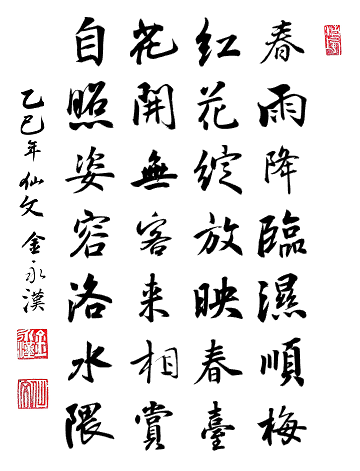 春雨降臨濕順梅
紅花綻放映春臺
花開無客来相賞
自照姿容洛水隈
乙巳年仙文金永漢